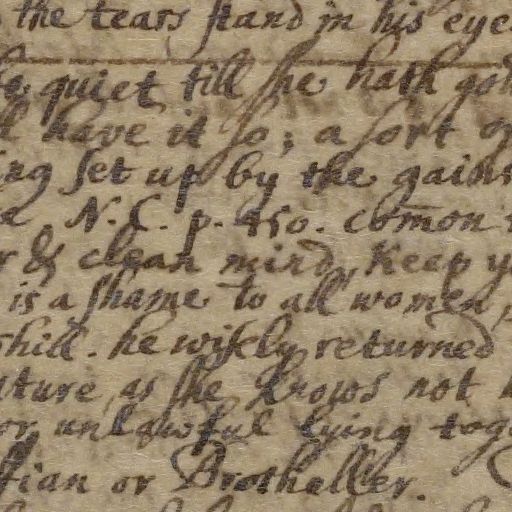 the tears stand in his eye
be quiet till she hath go
have it so; a sort o
ing set up by the gain
N.C. p. 450. comon
r & clean mind. Keep y
is a shame to all women,
shill. he wisely returned
ture, as she knows not
or unlawful lying tog
fian or Brotheller.